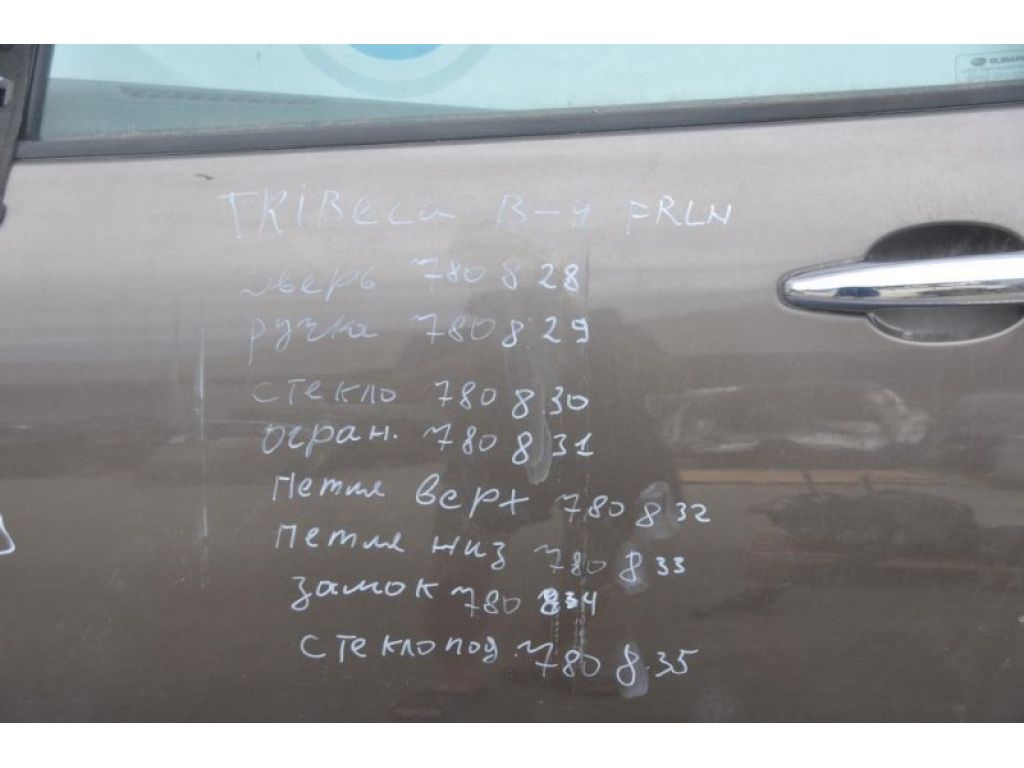 SUBARU
TRIBeca B-9 FRLN
дверь 780828
ручка 780829
стекло 780830
огран. 780831
Петля верх 780832
Петля низ 780833
Замок 780834
Стеклопод. 780835